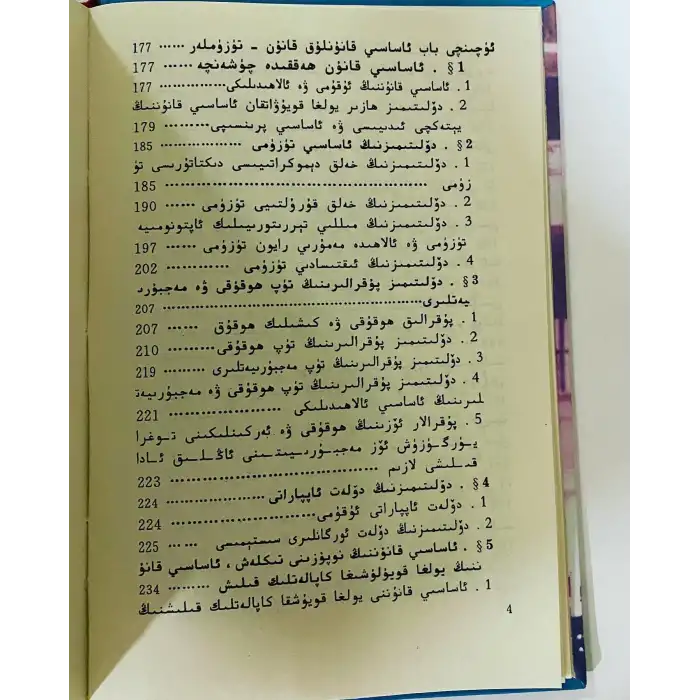 ئۈچىنچى باب ئاساسىي قانۇنلۇق قانۇن - تۈزۈملەر ······ 177
§ 1 . ئاساسىي قانۇن ھەققىدە چۈشەنچە ······ 177
1 . ئاساسىي قانۇننىڭ ئۇقۇمى ۋە ئالاھىدىلىكى ············ 177
2 . دۆلىتىمىز ھازىر يولغا قويۇۋاتقان ئاساسىي قانۇننىڭ
يېتەكچى ئىدىيىسى ۋە ئاساسىي پرىنسىپى ············ 179
§ 2 . دۆلىتىمىزنىڭ ئاساسىي تۈزۈمى ·················· 185
1 . دۆلىتىمىزنىڭ خەلق دېموكراتىيىسى دىكتاتۇرىسى تۈ
زۈمى ······················································ 185
2 . دۆلىتىمىزنىڭ خەلق قۇرۇلتىيى تۈزۈمى ······ 190
3 . دۆلىتىمىزنىڭ مىللىي تېررىتورىيىلىك ئاپتونومىيە
تۈزۈمى ۋە ئالاھىدە مەمۇرىي رايون تۈزۈمى ······ 197
4 . دۆلىتىمىزنىڭ ئىقتىسادىي تۈزۈمى ············ 202
§ 3 . دۆلىتىمىز پۇقرالىرىنىڭ تۈپ ھوقۇقى ۋە مەجبۇرى
يەتلىرى ······················································ 207
1 . پۇقرالىق ھوقۇقى ۋە كىشىلىك ھوقۇق ······ 207
2 . دۆلىتىمىز پۇقرالىرىنىڭ تۈپ ھوقۇقى ········· 210
3 . دۆلىتىمىز پۇقرالىرىنىڭ تۈپ مەجبۇرىيەتلىرى ········· 219
4 . دۆلىتىمىز پۇقرالىرىنىڭ تۈپ ھوقۇقى ۋە مەجبۇرىيەت
لىرىنىڭ ئاساسىي ئالاھىدىلىكى ····················· 221
5 . پۇقرالار ئۆزىنىڭ ھوقۇقى ۋە ئەركىنلىكىنى توغرا
يۈرگۈزۈش ئۆز مەجبۇرىيىتىنى ئاڭلىق ئادا
قىلىشى لازىم ································· 223
§ 4 . دۆلىتىمىزنىڭ دۆلەت ئاپپاراتى ··················· 224
1 . دۆلەت ئاپپاراتى ئۇقۇمى ························ 224
2 . دۆلىتىمىزنىڭ دۆلەت ئورگانلىرى سىستېمىسى ······ 225
§ 5 . ئاساسىي قانۇننىڭ نوپۇزىنى تىكلەش ، ئاساسىي قانۇ
ننىڭ يولغا قويۇلۇشىغا كاپالەتلىك قىلىش ········· 234
1 . ئاساسىي قانۇننى يولغا قويۇشقا كاپالەتلىك قىلىشنىڭ
4